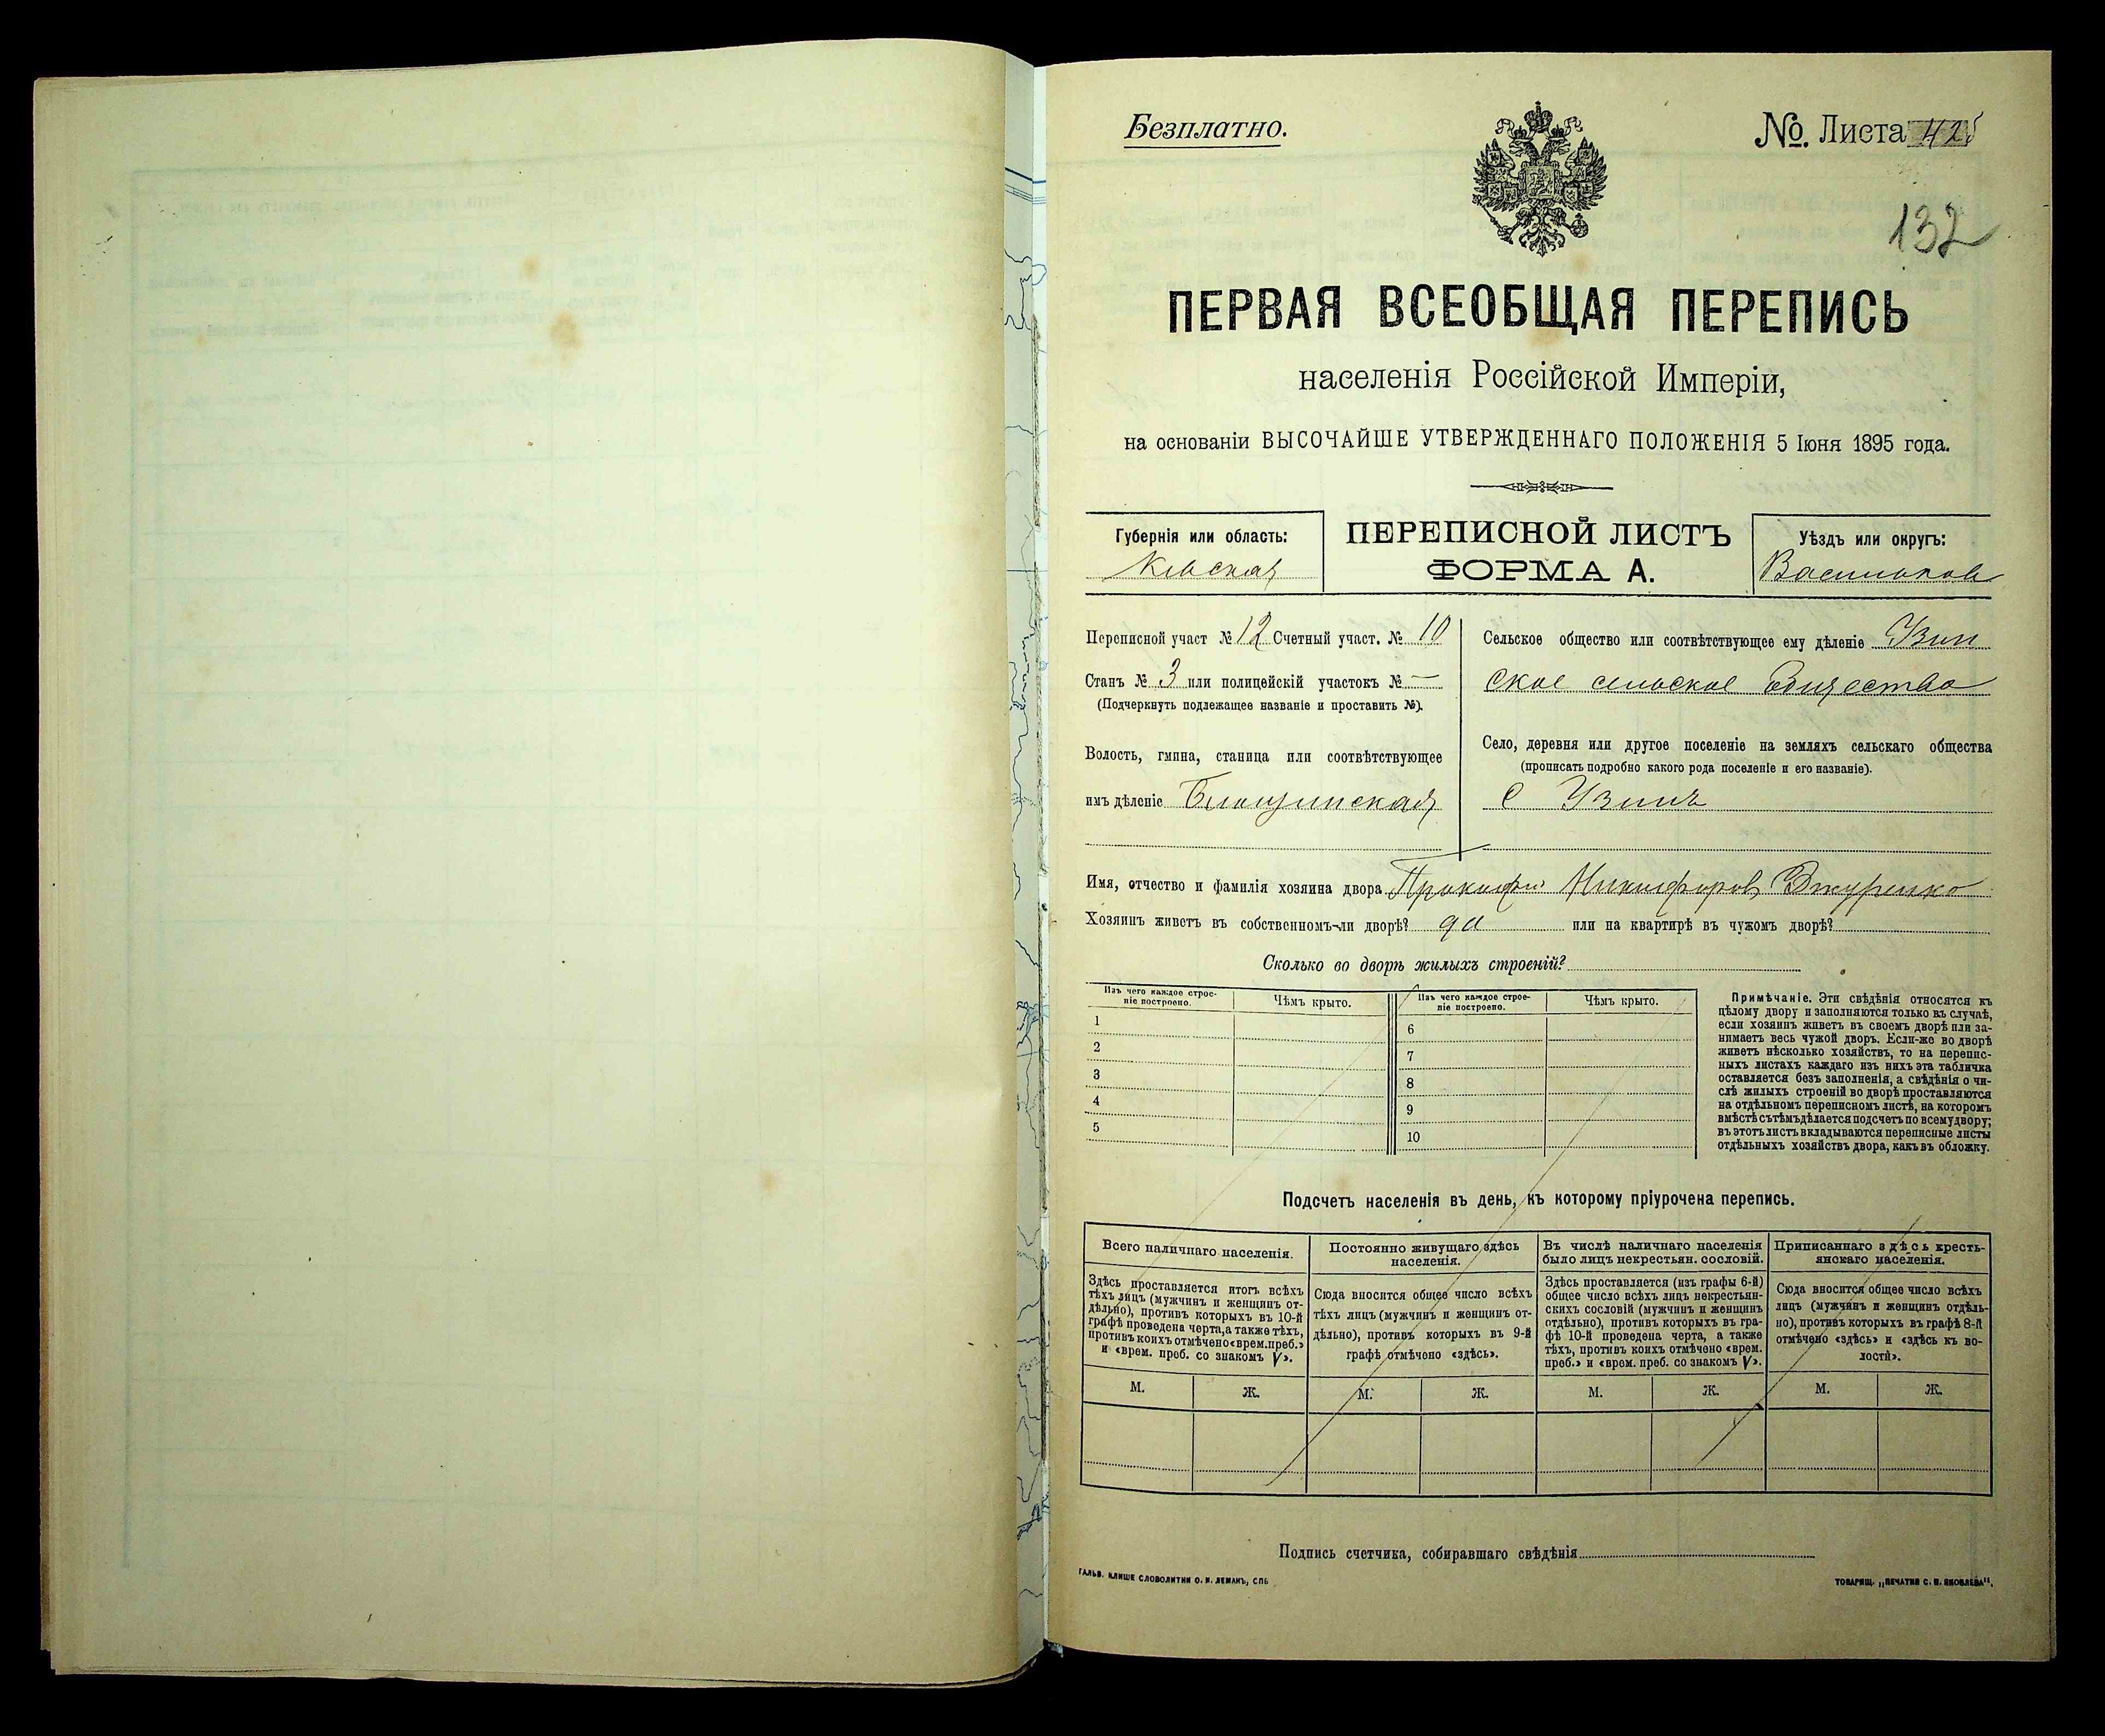 Безплатно.
№. Листа
132
ПЕРВАЯ ВСЕОБЩАЯ ПЕРЕПИСЬ
населенія Россійской Имперіи,
на основаніи ВЫСОЧАЙШЕ УТВЕРЖДЕННАГО ПОЛОЖЕНІЯ 5 Іюня 1895 года.
Губернія или область:
Кіевская
ПЕРЕПИСНОЙ ЛИСТЪ
ФОРМА А.
Уѣздъ или округъ:
Васильков
Переписной участ № 12 Счетный участ. № 10
Станъ № 3 или полицейскій участокъ № —
(Подчеркнуть подлежащее названіе и проставить №).
Волость, гмина, станица или соотвѣтствующее
имъ дѣленіе
Сельское общество или соотвѣтствующее ему дѣленіе Узин
ское сельское Общество
Село, деревня или другое поселеніе на земляхъ сельскаго общества
(прописать подробно какого рода поселеніе и его названіе).
с Узинъ
Имя, отчество и фамилія хозяина двора Прокофій Никифоров Джуренко
Хозяинъ живетъ въ собственномъ-ли дворѣ? да или на квартирѣ въ чужомъ дворѣ?
Сколько во дворѣ жилыхъ строеній?
Изъ чего каждое строе-
ніе построено.
Чѣмъ крыто.
1
2
3
4
5
Изъ чего каждое строе-
ніе построено.
Чѣмъ крыто.
6
7
8
9
10
Примѣчаніе. Эти свѣдѣнія относятся къ
цѣлому двору и заполняются только въ случаѣ,
если хозяинъ живетъ въ своемъ дворѣ или за-
нимаетъ весь чужой дворъ. Если-же во дворѣ
живетъ нѣсколько хозяйствъ, то на перепис-
ныхъ листахъ каждаго изъ нихъ эта табличка
оставляется безъ заполненія, а свѣдѣнія о чи-
слѣ жилыхъ строеній во дворѣ проставляются
на отдѣльномъ переписномъ листѣ, на которомъ
вмѣстѣ съ тѣмъ дѣлается подсчетъ по всему двору;
въ этотъ листъ вкладываются переписные листы
отдѣльныхъ хозяйствъ двора, какъ въ обложку.
Подсчетъ населенія въ день, къ которому пріурочена перепись.
Всего наличнаго населенія.
Здѣсь проставляется итогъ всѣхъ
тѣхъ лицъ (мужчинъ и женщинъ от-
дѣльно), противъ которыхъ въ 10-й
графѣ проведена черта, а также тѣхъ,
противъ коихъ отмѣчено «врем. преб.»
и «врем. преб. со знакомъ V».
М. Ж.
Постоянно живущаго здѣсь
населенія.
Сюда вносится общее число всѣхъ
тѣхъ лицъ (мужчинъ и женщинъ от-
дѣльно), противъ которыхъ въ 9-й
графѣ отмѣчено «здѣсь».
М. Ж.
Въ числѣ наличнаго населенія
было лицъ некрестьян. сословій.
Здѣсь проставляется (изъ графы 6-й)
общее число всѣхъ лицъ некрестьян-
скихъ сословій (мужчинъ и женщинъ
отдѣльно), противъ которыхъ въ гра-
фѣ 10-й проведена черта, а также
тѣхъ, противъ коихъ отмѣчено «врем.
преб.» и «врем. преб. со знакомъ V».
М. Ж.
Приписаннаго здѣсь кресть-
янскаго населенія.
Сюда вносится общее число всѣхъ
лицъ (мужчинъ и женщинъ отдѣль-
но), противъ которыхъ въ графѣ 8-й
отмѣчено «здѣсь» и «здѣсь къ во-
лости».
М. Ж.
Подпись счетчика, собиравшаго свѣдѣнія
ГАЛЬВ. КЛИШЕ СЛОВОЛИТНИ О. И. ЛЕМАНЪ, СПБ
ТОВАРИЩ. „ПЕЧАТНЯ С. П. ЯКОВЛЕВА“.